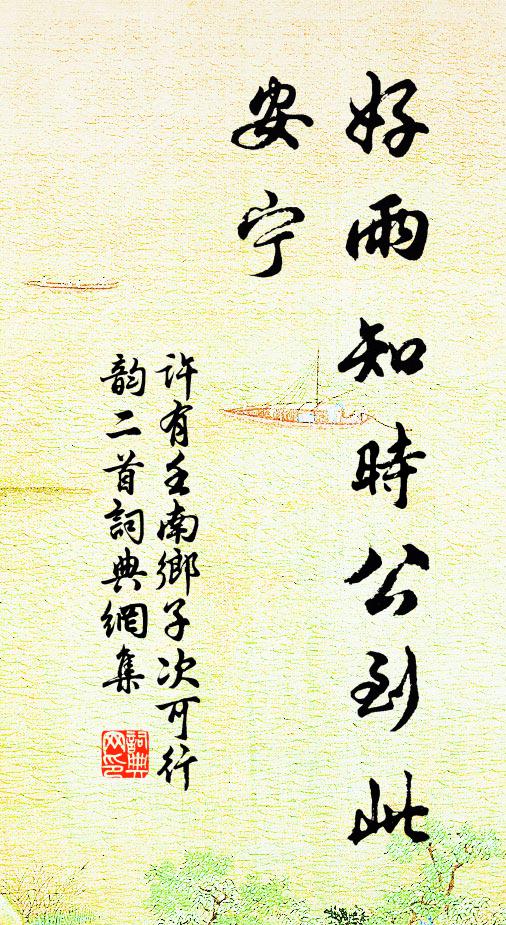 好雨知時公到此
安宁
许有壬南鄉子次可行
韵二首詞典網集
詞典网印